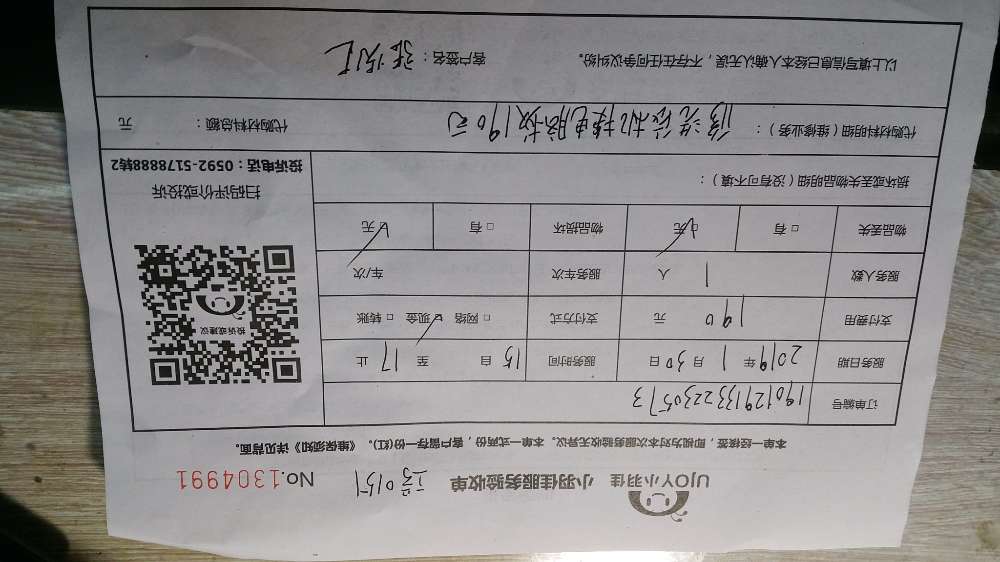 UJOY小羽佳 小羽佳服务验收单 0151 No.1304991
本单一经接签，即视为对本次服务验收无异议。本单一式两份，客户留存一份(红)。《维保须知》详见背面。
订单编号 1901291332230573
服务日期 2019年1月30日 服务时间 15自 至17止
支付费用 190元 支付方式 □网络 ☑现金 □转账
服务人数 1人 服务车次 车/次
物品丢失 □有 ☑无 物品损坏 □有 ☑无
损坏或丢失物品明细（没有可不填）：
投诉或建议
扫码评价或投诉
投诉电话：0592-5178888转2
代购材料明细（维修业务）： 洗衣机换电脑板190元 代购材料总额： 元
以上填写信息已经本人确认无误，不存在任何争议纠纷。 客户签名：